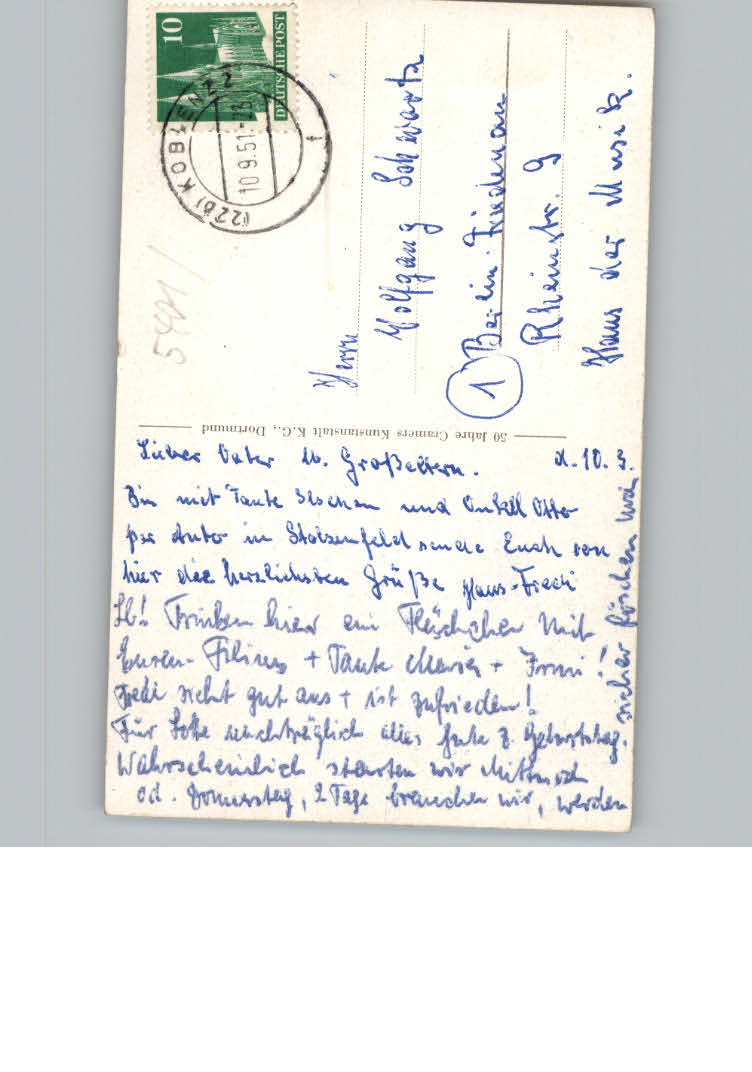 10
DEUTSCHE POST
(22b) KOBLENZ 2
10.9.51.-23
f
Herrn
Wolfgang Schwartz
1 Berlin-Friedenau
Rheinstr. 9
Haus der Musik.
50 Jahre Cramers Kunstanstalt K.G., Dortmund
Lieber Vater u. Großeltern. d. 10. 9.
Bin mit Tante und Onkel Otto
per Auto in Stolzenfeld sende Euch von
hier die herzlichsten Grüße Hans-Fredi
Trinken hier ein Fläschchen mit
+ Tante Maria + Irmi!
Fredi sieht gut aus + ist zufrieden!
Für Lotte nachträglich alles Gute z. Geburtstag.
Wahrscheinlich starten wir Mittwoch
od. Donnerstag, 2 Tage brauchen wir, werden
sicher